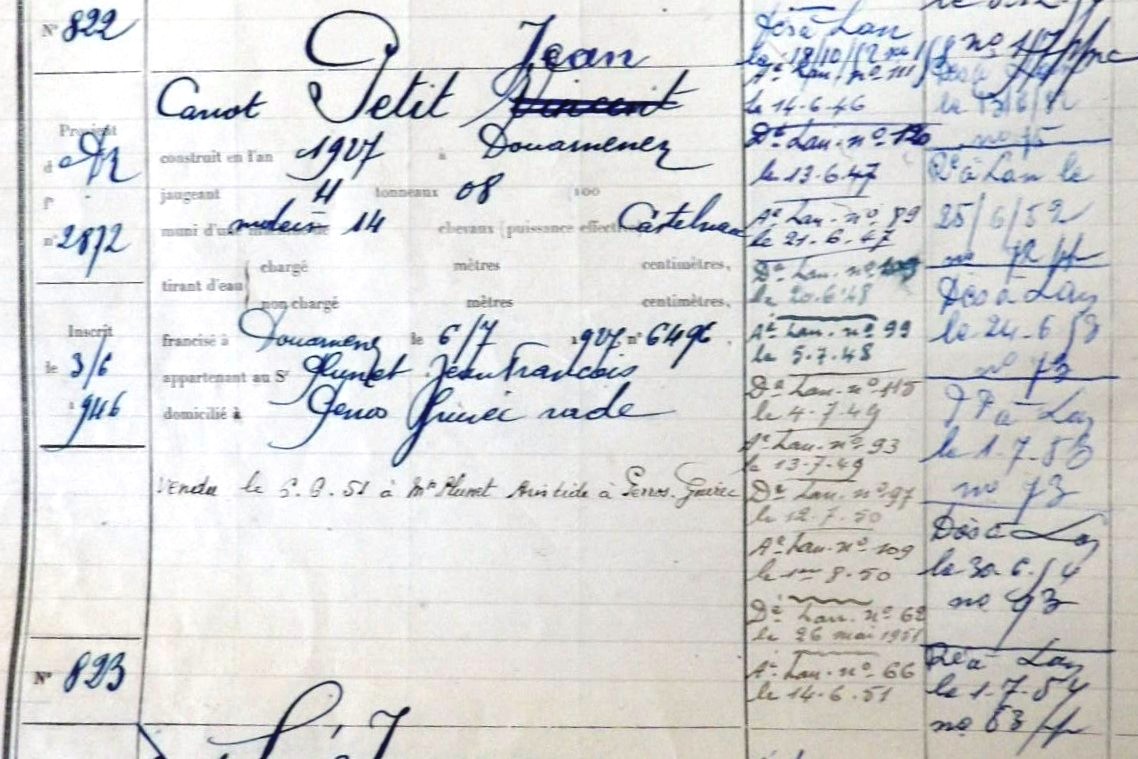 N° 822
Jean
Canot Petit Vincent
Provient
d
construit en l'an 1927 à Douarnenez
jaugeant 4 tonneaux 08 /100
f°
n° 2872
muni d'un moteur 14 chevaux (puissance effect Castelnau
tirant d'eau
chargé mètres centimètres,
non chargé mètres centimètres,
Inscrit
le 3/6
1946
francisé à Douarnenez le 6/7 1927 n° 6496,
appartenant au Sr Plunet Jean François
domicilié à Perros Guirec rade
Vendu le 5.9.51 à Mr Plunet Aristide à Perros-Guirec
N° 823
Dés à Lan
le 18/10/52
Ae Lan. n° 111
le 14-6-46
De Lan. n° 120
le 13.6.47
Ae Lan. n° 89
le 21.6.47
De Lan. n°
le 20.6.48
Ae Lan. n° 99
le 5.7.48
De Lan. n° 115
le 4-7-49
Ae Lan. n° 93
le 13-7-49
De Lan. n° 97
le 12.7.50
Ae Lan. n° 109
le 1er 8.50
De Lan. n° 62
le 26 mai 1951
Ae Lan. n° 66
le 14-6-51
n° 75
Ré à Lan le
25/6/52
n° 72
Dés à Lan
le 24-6-53
n° 73
à Lan
le 1.7.53
n° 73
Dés à Lan
le 30-6-54
n° 93
Ré à Lan
le 1-7-54
n° 63